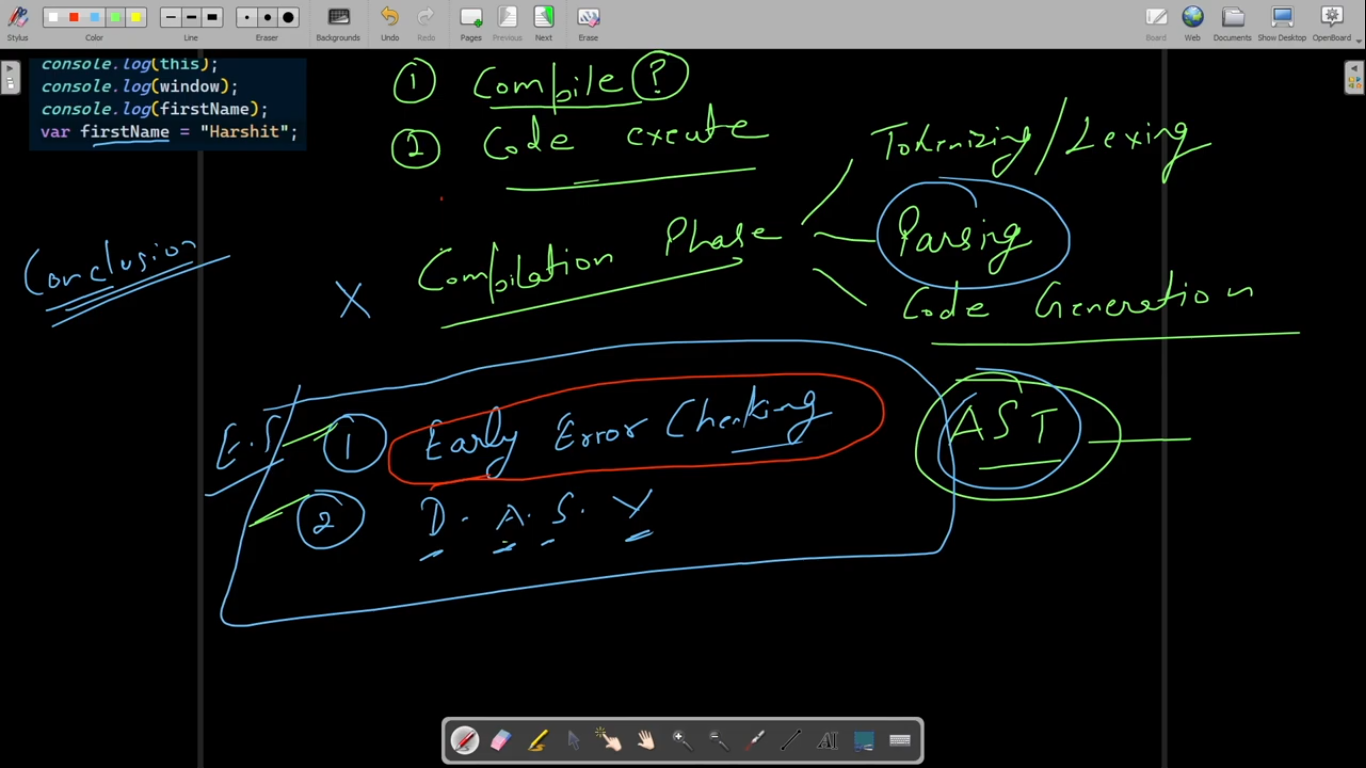 Stylus
Color
Line
Eraser
Backgrounds
Undo
Redo
Pages
Previous
Next
Erase
Board
Web
Documents
Show Desktop
OpenBoard
console.log(this);
console.log(window);
console.log(firstName);
var firstName = "Harshit";
① Compile ?
② Code execute
Tokenizing/Lexing
Compilation Phase
Parsing
Code Generation
Conclusion
X
E.S
① Early Error Checking
AST
② D. A. S. Y
AI